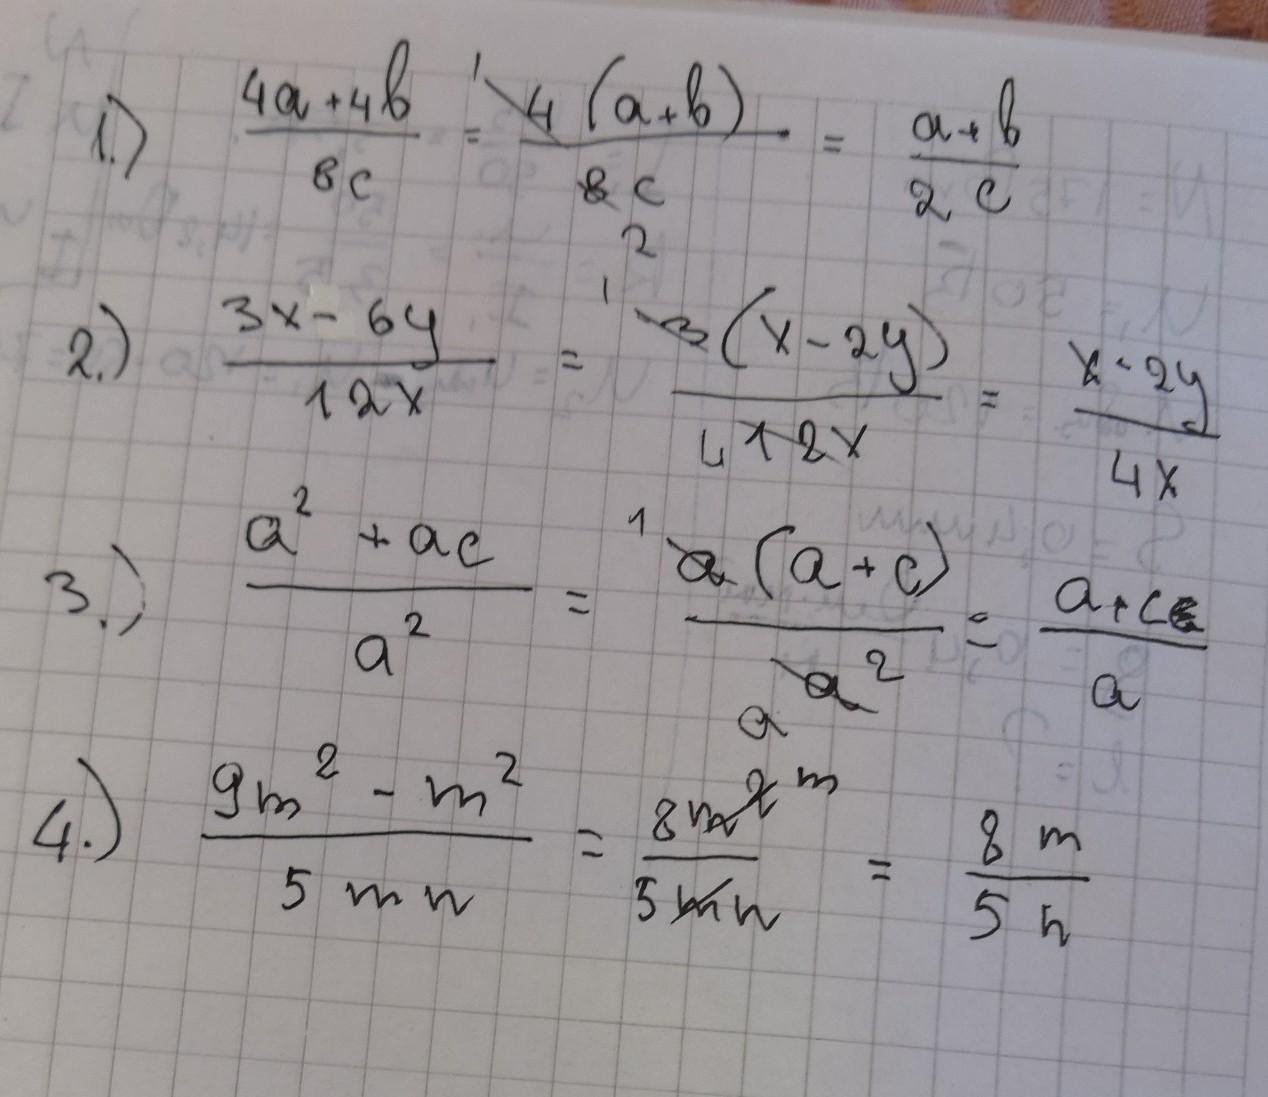 1.) (4a+4b)/(8c) = ¹ 4(a+b)/(8c) ₂ = (a+b)/(2c)
2.) (3x-6y)/(12x) = ¹ 3(x-2y)/(4 12x) = (x-2y)/(4x)
3.) (a²+ac)/(a²) = ¹ a(a+c)/(a a²) = (a+c)/(a)
4.) (9m²-m²)/(5mn) = (8m² m)/(5mn) = (8m)/(5n)